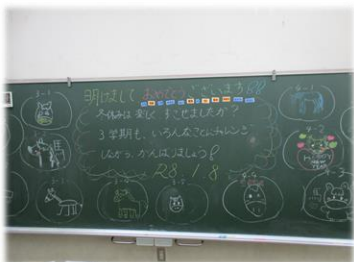 明けまして おめでとう ございます
冬休みは楽しくすごせましたか?
3学期も、いろんなことにチャレンジ
しながら、がんばりましょう
28.1.8